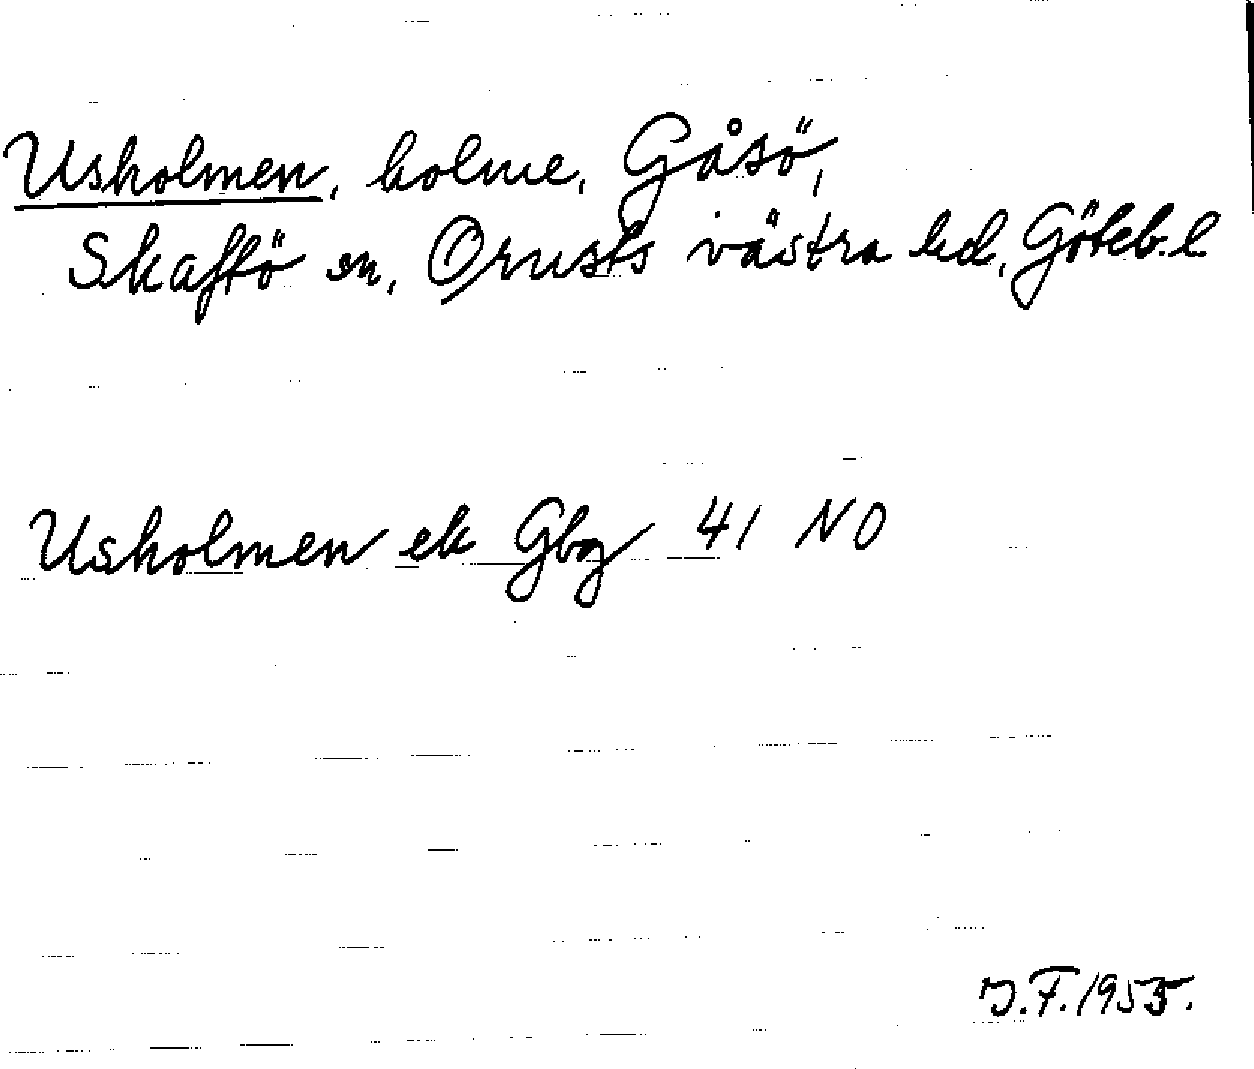 Usholmen, holme, Gåsö,
Skaftö sn, Orusts västra hd, Göteb. l.
Usholmen ek Gbg 41 NO
J.F. 1955.